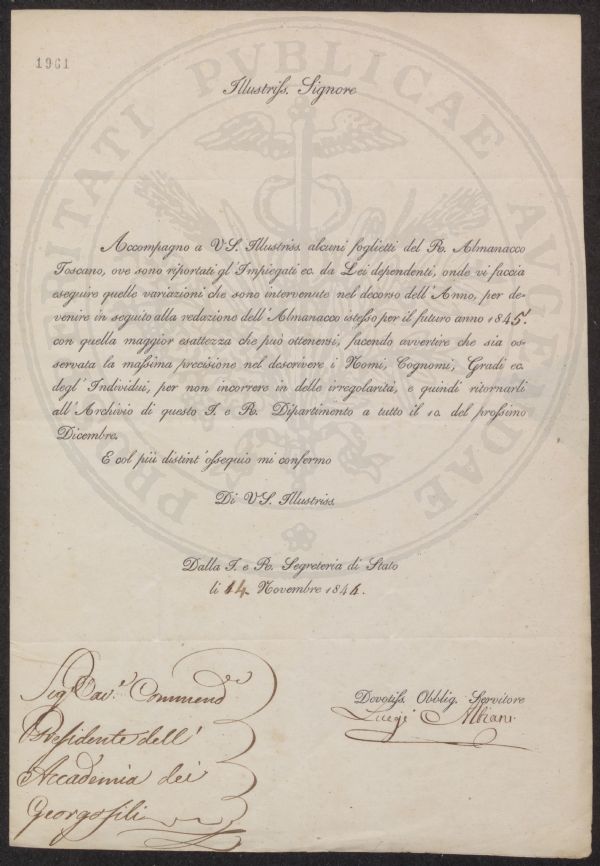 1961
PROSPERITATI PVBLICAE AVGENDAE
Illustriss. Signore
Accompagno a VS. Illustriss. alcuni foglietti del R. Almanacco
Toscano, ove sono riportati gl'Impiegati ec. da Lei dependenti, onde vi faccia
eseguire quelle variazioni che sono intervenute nel decorso dell'Anno, per de-
venire in seguito alla redazione dell'Almanacco istesso per il futuro anno 1845.
con quella maggior esattezza che può ottenersi, facendo avvertire che sia os-
servata la massima precisione nel descrivere i Nomi, Cognomi, Gradi ec.
degl'Individui, per non incorrere in delle irregolarità, e quindi ritornarli
all'Archivio di questo I. e R. Dipartimento a tutto il 10. del prossimo
Dicembre.
E col più distint'ossequio mi confermo
Di VS. Illustriss.
Dalla I. e R. Segreteria di Stato
li 14 Novembre 1844.
Devotiss. Obblig. Servitore
Luigi Albiani
Sigr. Cav.e Commendre
Presidente dell'
Accademia dei
Georgofili